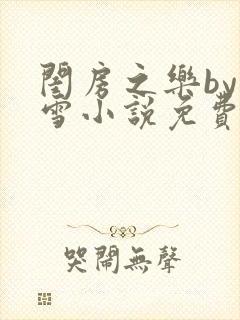 閨房之樂by
雪小說免費
哭鬧無聲